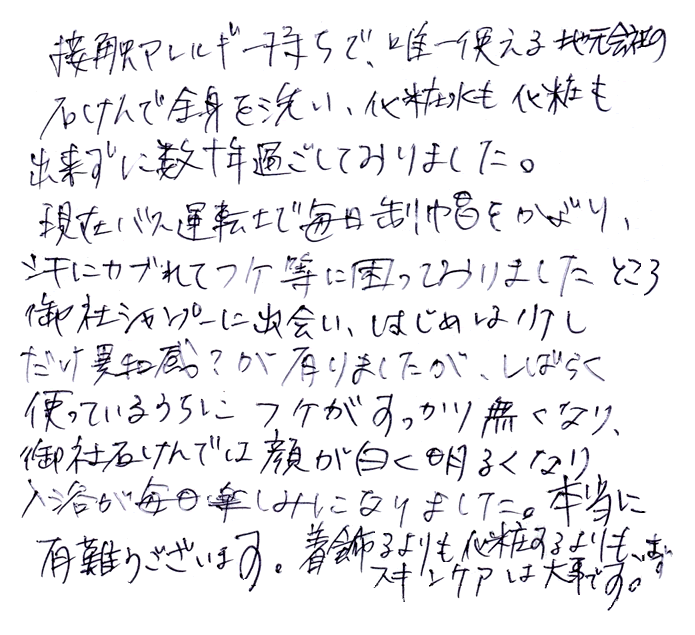 接触アレルギー持ちで、唯一使える地元会社の
石けんで全身を洗い、化粧水も化粧も
出来ずに数十年過ごしておりました。
現在バス運転士で毎日制帽をかぶり、
汗にカブれてフケ等に困っておりましたところ
御社シャンプーに出会い、はじめは少し
だけ異和感？が有りましたが、しばらく
使っているうちに フケがすっかり無くなり、
御社石けんでは顔が白く明るくなり
入浴が毎日楽しみになりました。本当に
有難うございます。着飾るよりも化粧するよりも、まず
スキンケアは大事です。